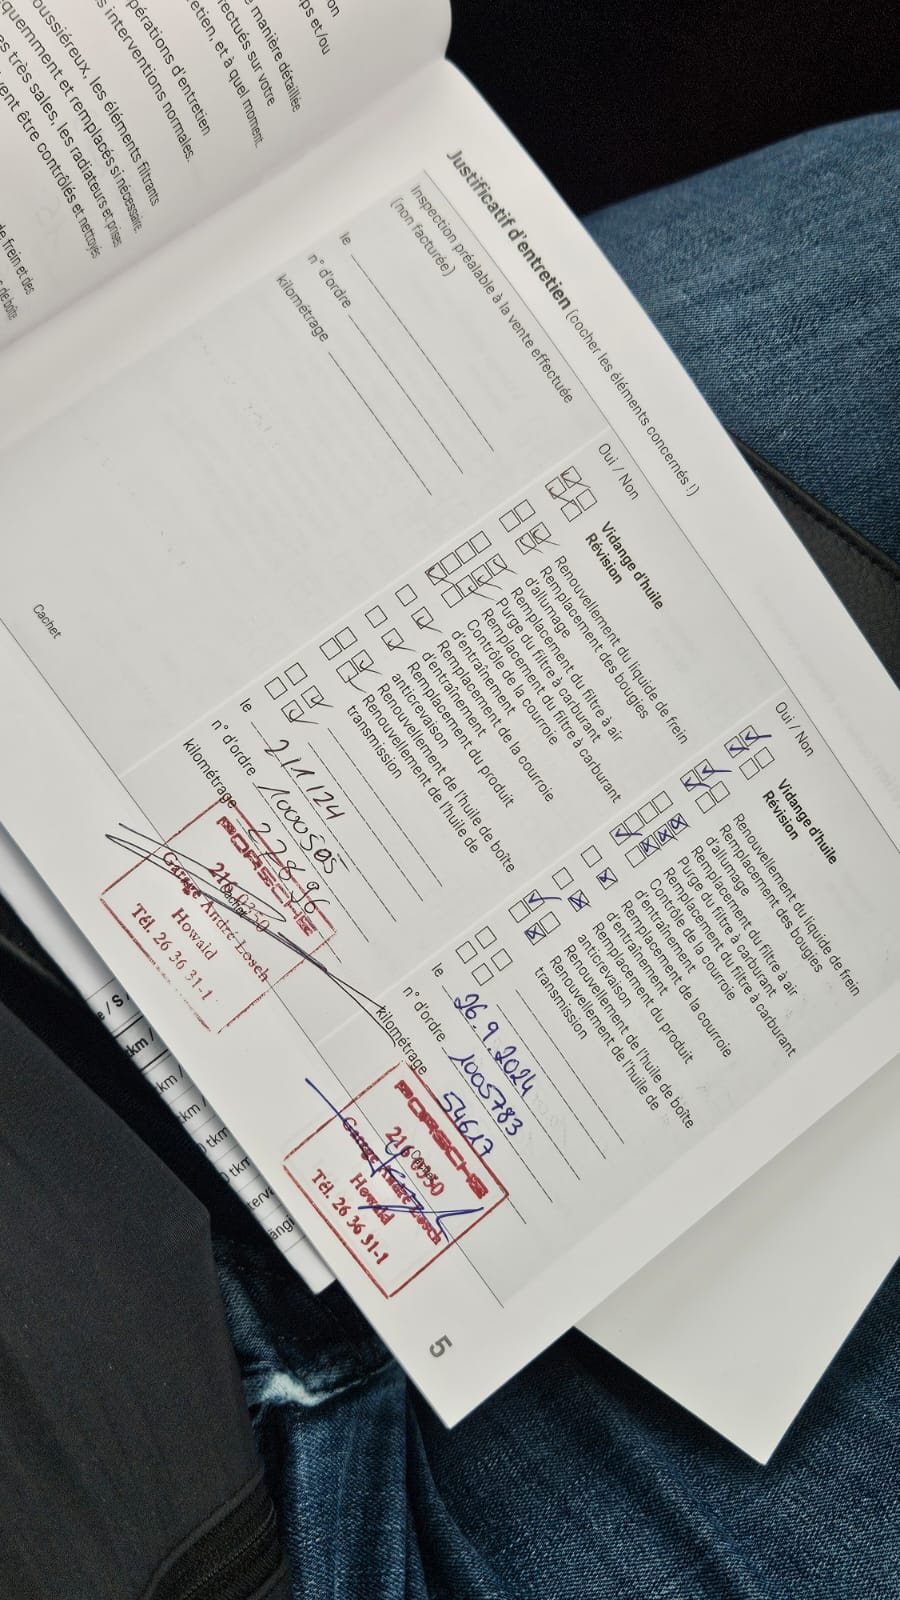 on,
ps et/ou
e manière détaillée
ectués sur votre
etien, et à quel moment.
pérations d'entretien
s interventions normales.
oussiéreux, les éléments filtrants
quemment et remplacés si nécessaire.
es très sales, les radiateurs et prises
vent être contrôlés et nettoyés
de frein et des
s de boîte
Justificatif d'entretien (cocher les éléments concernés !)
Inspection préalable à la vente effectuée
(non facturée)
le
n° d'ordre
kilométrage
Cachet
Oui / Non
Vidange d'huile
Révision
Renouvellement du liquide de frein
Remplacement des bougies
d'allumage
Remplacement du filtre à air
Purge du filtre à carburant
Remplacement du filtre à carburant
Contrôle de la courroie
d'entraînement
Remplacement de la courroie
d'entraînement
Remplacement du produit
anticrevaison
Renouvellement de l'huile de boîte
Renouvellement de l'huile de
transmission
le 211124
n° d'ordre 1000505
kilométrage 27896
Cachet
PORSCHE
216 0350
Garage André Losch
Howald
Tél. 26 36 31-1
Oui / Non
Vidange d'huile
Révision
Renouvellement du liquide de frein
Remplacement des bougies
d'allumage
Remplacement du filtre à air
Purge du filtre à carburant
Remplacement du filtre à carburant
Contrôle de la courroie
d'entraînement
Remplacement de la courroie
d'entraînement
Remplacement du produit
anticrevaison
Renouvellement de l'huile de boîte
Renouvellement de l'huile de
transmission
le 26.9.2024
n° d'ordre 1005783
kilométrage 54617
PORSCHE
216 0350
Garage André Losch
Howald
Tél. 26 36 31-1
5
e / S
tkm /
km /
km /
0 tkm
0 tkm
terva
ängi